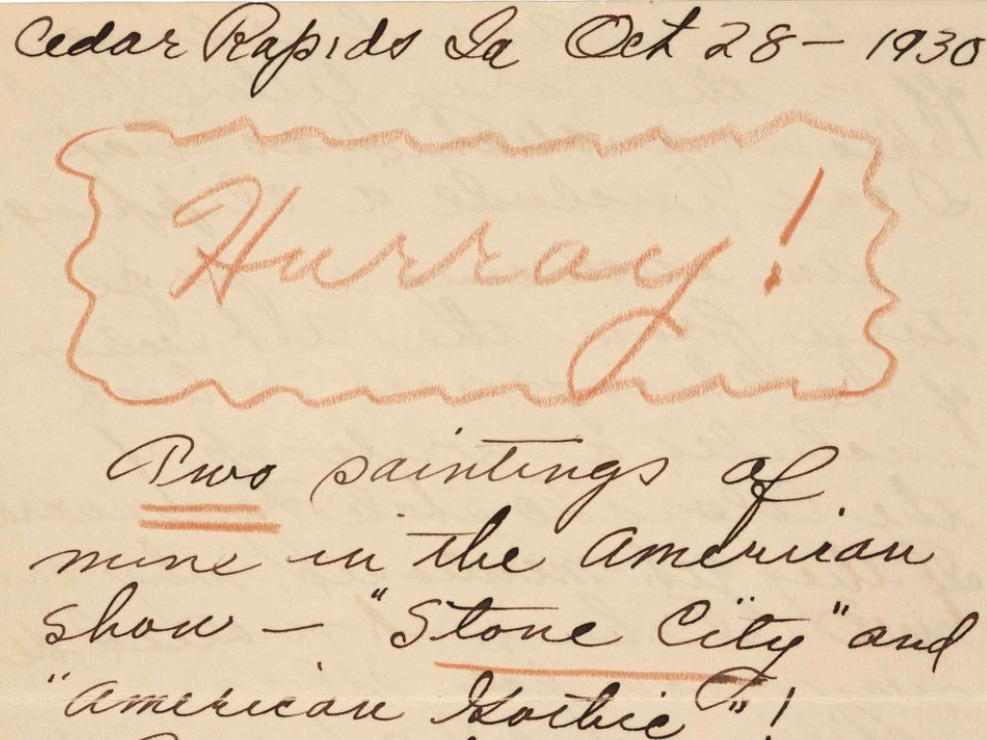 Cedar Rapids Ia Oct 28 – 1930
Hurray!
Two paintings of
mine in the American
show – "Stone City" and
"American Gothic"!